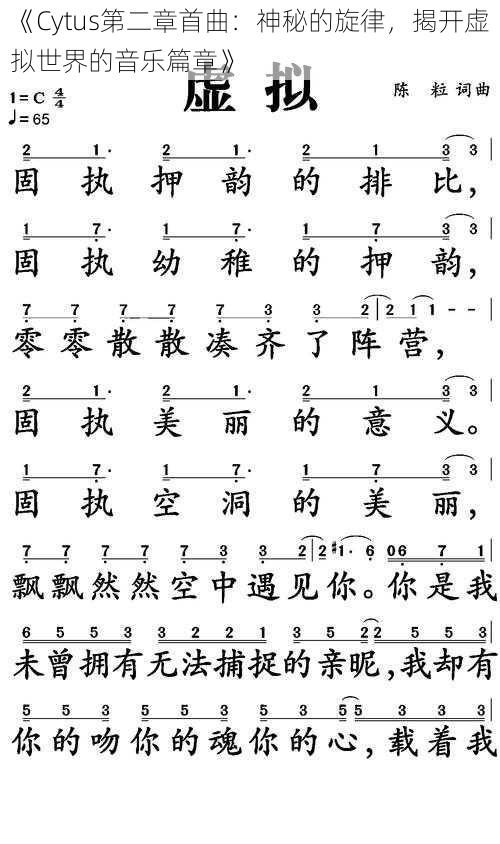 《Cytus第二章首曲：神秘的旋律，揭开虚
拟世界的音乐篇章》
虚 拟
1=C 4/4
陈 粒 词曲
♩=65
2 1· 2 1· 2 1 3 3
固执押韵的排比，
1 7· 1 7· 1 7 3 3
固执幼稚的押韵，
7 7 7 7 7 3 3 2 2 1 1 - -
零零散散凑齐了阵营，
2 1· 2 1· 2 1 3 3
固执美丽的意义。
1 7· 1 7· 1 7 3 3
固执空洞的美丽，
7 7 7 7 7 3 3 2 2 #1· 6 06 7 1
飘飘然然空中遇见你。你是我
6 5 5 3 3 2 2 1 3 5 5 2 2 5 5 3
未曾拥有无法捕捉的亲昵，我却有
5 5 3 5 5 3 5 5 3 5 5 3 3 3
你的吻你的魂你的心，载着我